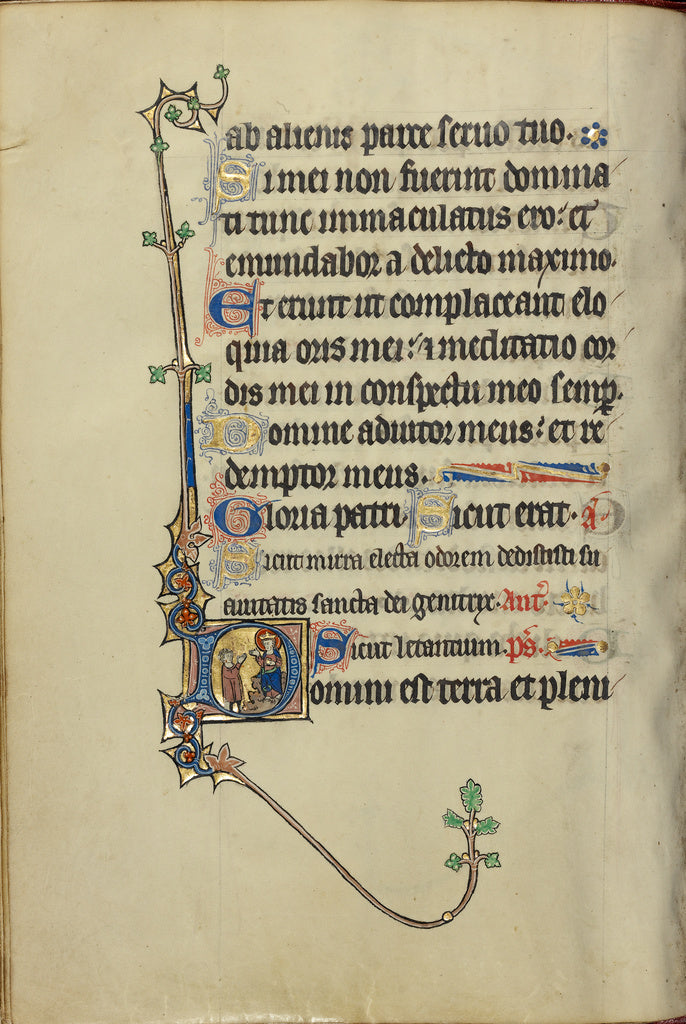 ab alienis parce seruo tuo.
Si mei non fuerint domina
ti tunc immaculatus ero: et
emundabor a delicto maximo.
Et erunt ut complaceant elo
quia oris mei: ⁊ meditatio cor
dis mei in conspectu meo semp.
Domine adiutor meus: et re
demptor meus.
Gloria patri. Sicut erat. A.
Sicut mirra electa odorem dedististi su
auitatis sancta dei genitrix. Ant.
Sicut letantium. ps.
Domini est terra et pleni